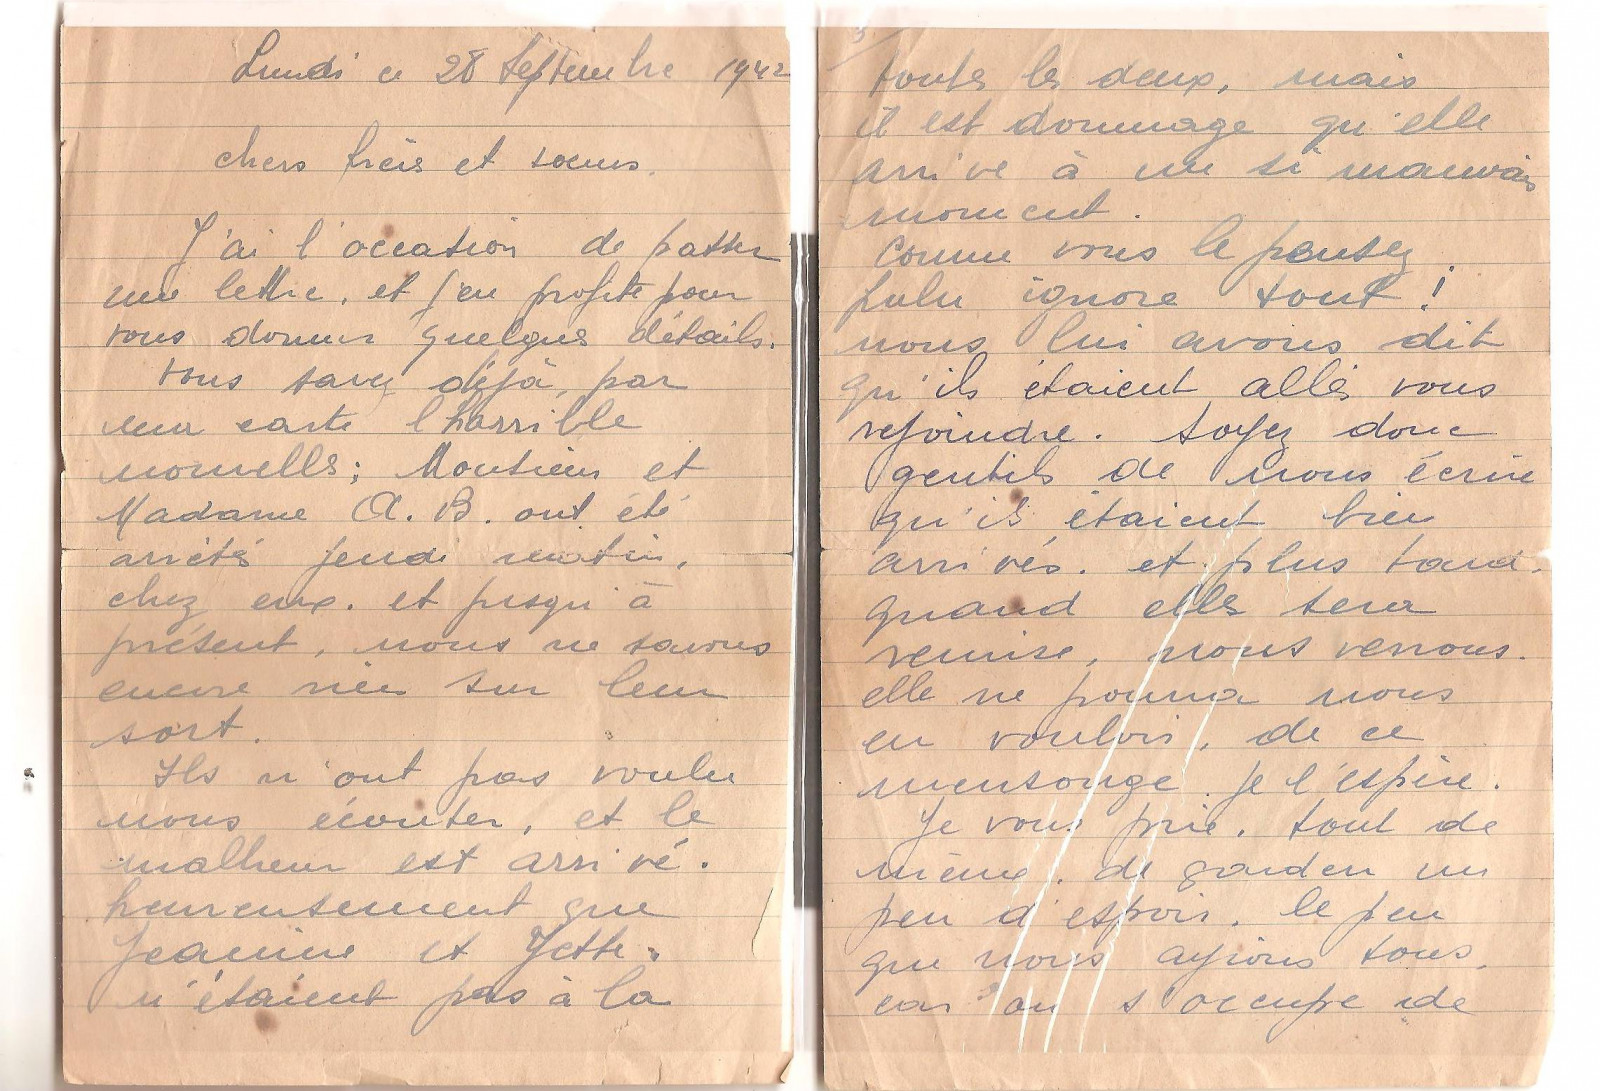 Lundi ce 28 Septembre 1942
chers frères et soeurs.
J'ai l'occasion de passer
une lettre, et j'en profite pour
vous donner quelques détails.
Vous savez déjà, par
une carte l'horrible
nouvelle ; Monsieur et
Madame A. B. ont été
arrêtés jeudi matin,
chez eux. et jusqu'à
présent, nous ne savons
encore rien sur leur
sort.
Ils n'ont pas voulu
nous écouter, et le
malheur est arrivé.
heureusement que
Jeanine et Yette
n'étaient pas à la
3/
toutes les deux, mais
il est dommage qu'elle
arrive à un si mauvais
moment.
Comme vous le pensez
Lulu ignore tout !
nous lui avons dit
qu'ils étaient allés vous
rejoindre. Soyez donc
gentils de nous écrire
qu'ils étaient bien
arrivés. et plus tard.
quand elle sera
remise, nous verrons.
elle ne pourra nous
en vouloir, de ce
mensonge. je l'espère.
Je vous prie, tout de
même, de garder un
peu d'espoir. le peu
que nous ayions tous.
car on s'occupe de